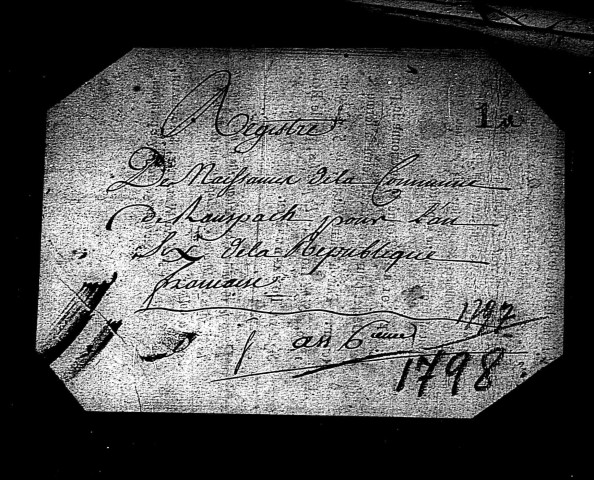 Registre
De Naissance dela Commune
de Ranspach pour l'an
Six dela Republique
francaise
1797
an 6 ieme
1798